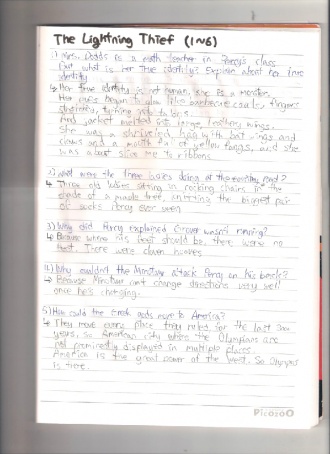 The Lightning Thief (1~6)
1) Mrs. Dodds is a math teacher in Percy's class.
But what is her true identity? Explain about her true
identity
↳ Her true identity is not human, she is a monster.
Her eyes began to glow like barbecue coals, fingers
stretched, turning into talons.
And jacket melted into large leathery wings.
She was a shriveled hag with bat wings and
claws and a mouth full of yellow fangs, and she
was about slice me to ribbons
2) What were the three ladies doing at the road?
↳ Three old ladies sitting in rocking chairs in the
shade of a maple tree, knitting the biggest pair
of socks Percy ever seen
3) Why did Percy explained Grover wasn't running?
↳ Because where his feet should be, there were no
feet. There were cloven hooves
4) Why couldn't the Minotaur attack Percy on his back?
↳ Because Minotaur not change directions very well
once he's charging.
5) How could the Greek gods move to America?
↳ They move every place they ruled, for the last 3000
years, So American city where the Olympians are
not prominently displayed in multiple places.
America is the great power of the West. So Olympus
is here.
Picaso